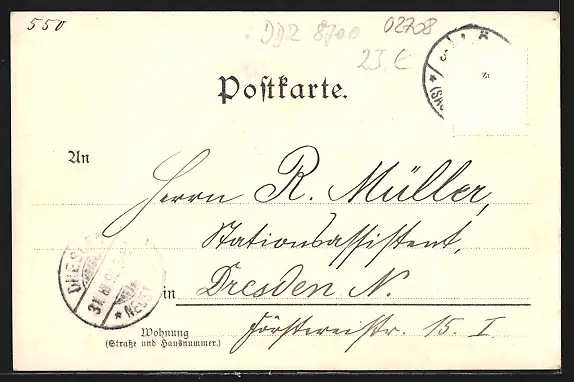 550
DDR 8700
02708
23,€
Postkarte.
An
Herrn R. Müller,
Stationsassistent,
in Dresden N.
Wohnung
(Straße und Hausnummer.)
Förstereistr. 15. I.
DRESDEN
31.8.
* NEUST